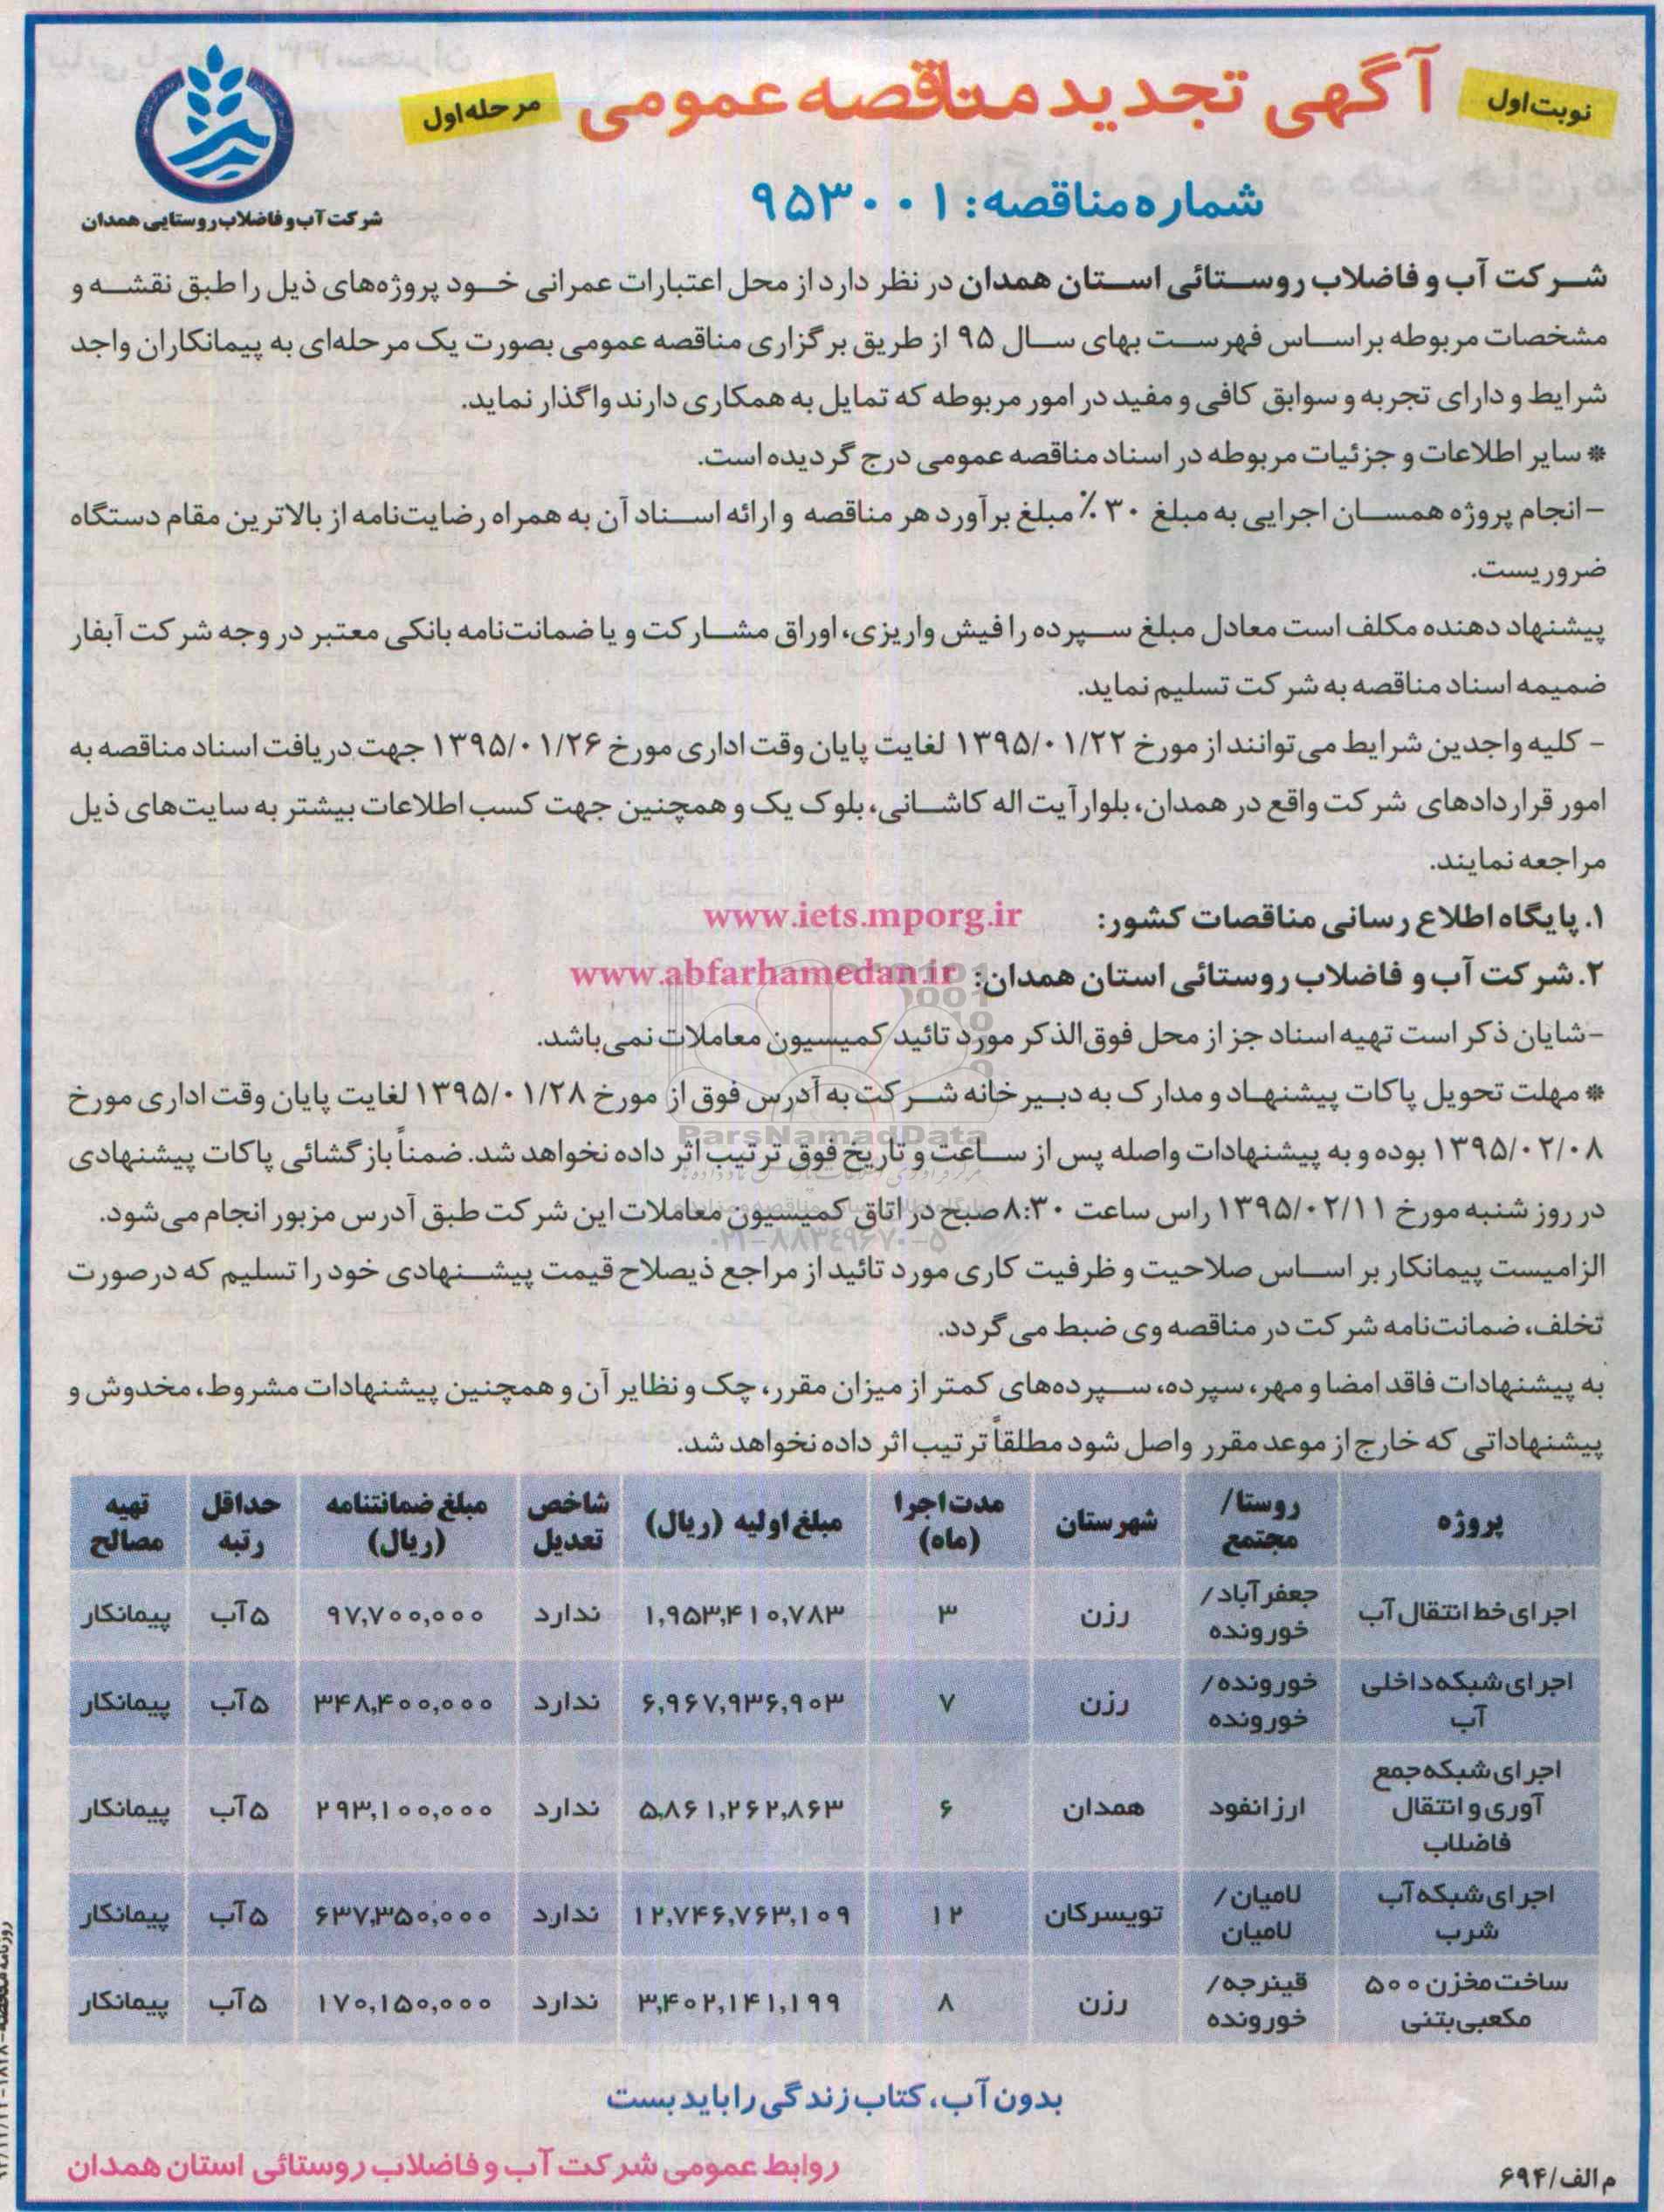 نوبت اول
آگهی تجدید مناقصه عمومی
مرحله اول
شماره مناقصه: ۹۵۳۰۰۱
شرکت آب و فاضلاب روستایی همدان
شرکت آب و فاضلاب روستائی استان همدان در نظر دارد از محل اعتبارات عمرانی خود پروژه‌های ذیل را طبق نقشه و
مشخصات مربوطه براساس فهرست بهای سال ۹۵ از طریق برگزاری مناقصه عمومی بصورت یک مرحله‌ای به پیمانکاران واجد
شرایط و دارای تجربه و سوابق کافی و مفید در امور مربوطه که تمایل به همکاری دارند واگذار نماید.
* سایر اطلاعات و جزئیات مربوطه در اسناد مناقصه عمومی درج گردیده است.
- انجام پروژه همسان اجرایی به مبلغ ۳۰٪ مبلغ برآورد هر مناقصه و ارائه اسناد آن به همراه رضایت‌نامه از بالاترین مقام دستگاه
ضروریست.
پیشنهاد دهنده مکلف است معادل مبلغ سپرده را فیش واریزی، اوراق مشارکت و یا ضمانت‌نامه بانکی معتبر در وجه شرکت آبفار
ضمیمه اسناد مناقصه به شرکت تسلیم نماید.
- کلیه واجدین شرایط می‌توانند از مورخ ۱۳۹۵/۰۱/۲۲ لغایت پایان وقت اداری مورخ ۱۳۹۵/۰۱/۲۶ جهت دریافت اسناد مناقصه به
امور قراردادهای شرکت واقع در همدان، بلوار آیت اله کاشانی، بلوک یک و همچنین جهت کسب اطلاعات بیشتر به سایت‌های ذیل
مراجعه نمایند.
۱. پایگاه اطلاع رسانی مناقصات کشور: www.iets.mporg.ir
۲. شرکت آب و فاضلاب روستائی استان همدان: www.abfarhamedan.ir
- شایان ذکر است تهیه اسناد جز از محل فوق‌الذکر مورد تائید کمیسیون معاملات نمی‌باشد.
* مهلت تحویل پاکات پیشنهاد و مدارک به دبیرخانه شرکت به آدرس فوق از مورخ ۱۳۹۵/۰۱/۲۸ لغایت پایان وقت اداری مورخ
ParsNamadData
۱۳۹۵/۰۲/۰۸ بوده و به پیشنهادات واصله پس از ساعت و تاریخ فوق ترتیب اثر داده نخواهد شد. ضمناً بازگشائی پاکات پیشنهادی
در روز شنبه مورخ ۱۳۹۵/۰۲/۱۱ راس ساعت ۸:۳۰ صبح در اتاق کمیسیون معاملات این شرکت طبق آدرس مزبور انجام می‌شود.
۰۲۱-۸۸۳۴۹۶۷۰-۵
الزامیست پیمانکار بر اساس صلاحیت و ظرفیت کاری مورد تائید از مراجع ذیصلاح قیمت پیشنهادی خود را تسلیم که در صورت
تخلف، ضمانت‌نامه شرکت در مناقصه وی ضبط می‌گردد.
به پیشنهادات فاقد امضا و مهر، سپرده، سپرده‌های کمتر از میزان مقرر، چک و نظایر آن و همچنین پیشنهادات مشروط، مخدوش و
پیشنهاداتی که خارج از موعد مقرر واصل شود مطلقاً ترتیب اثر داده نخواهد شد.
پروژه روستا/ مجتمع شهرستان مدت اجرا (ماه) مبلغ اولیه (ریال) شاخص تعدیل مبلغ ضمانتنامه (ریال) حداقل رتبه تهیه مصالح
اجرای خط انتقال آب جعفرآباد/ خورونده رزن ۳ ۱,۹۵۳,۴۱۰,۷۸۳ ندارد ۹۷,۷۰۰,۰۰۰ ۵ آب پیمانکار
اجرای شبکه داخلی آب خورونده/ خورونده رزن ۷ ۶,۹۶۷,۹۳۶,۹۰۳ ندارد ۳۴۸,۴۰۰,۰۰۰ ۵ آب پیمانکار
اجرای شبکه جمع آوری و انتقال فاضلاب ارزانفود همدان ۶ ۵,۸۶۱,۲۶۲,۸۶۳ ندارد ۲۹۳,۱۰۰,۰۰۰ ۵ آب پیمانکار
اجرای شبکه آب شرب لامیان/ لامیان تویسرکان ۱۲ ۱۲,۷۴۶,۷۶۳,۱۰۹ ندارد ۶۳۷,۳۵۰,۰۰۰ ۵ آب پیمانکار
ساخت مخزن ۵۰۰ مکعبی بتنی قینرجه/ خورونده رزن ۸ ۳,۴۰۲,۱۴۱,۱۹۹ ندارد ۱۷۰,۱۵۰,۰۰۰ ۵ آب پیمانکار
بدون آب، کتاب زندگی را باید بست
روابط عمومی شرکت آب و فاضلاب روستائی استان همدان
م الف/۶۹۴